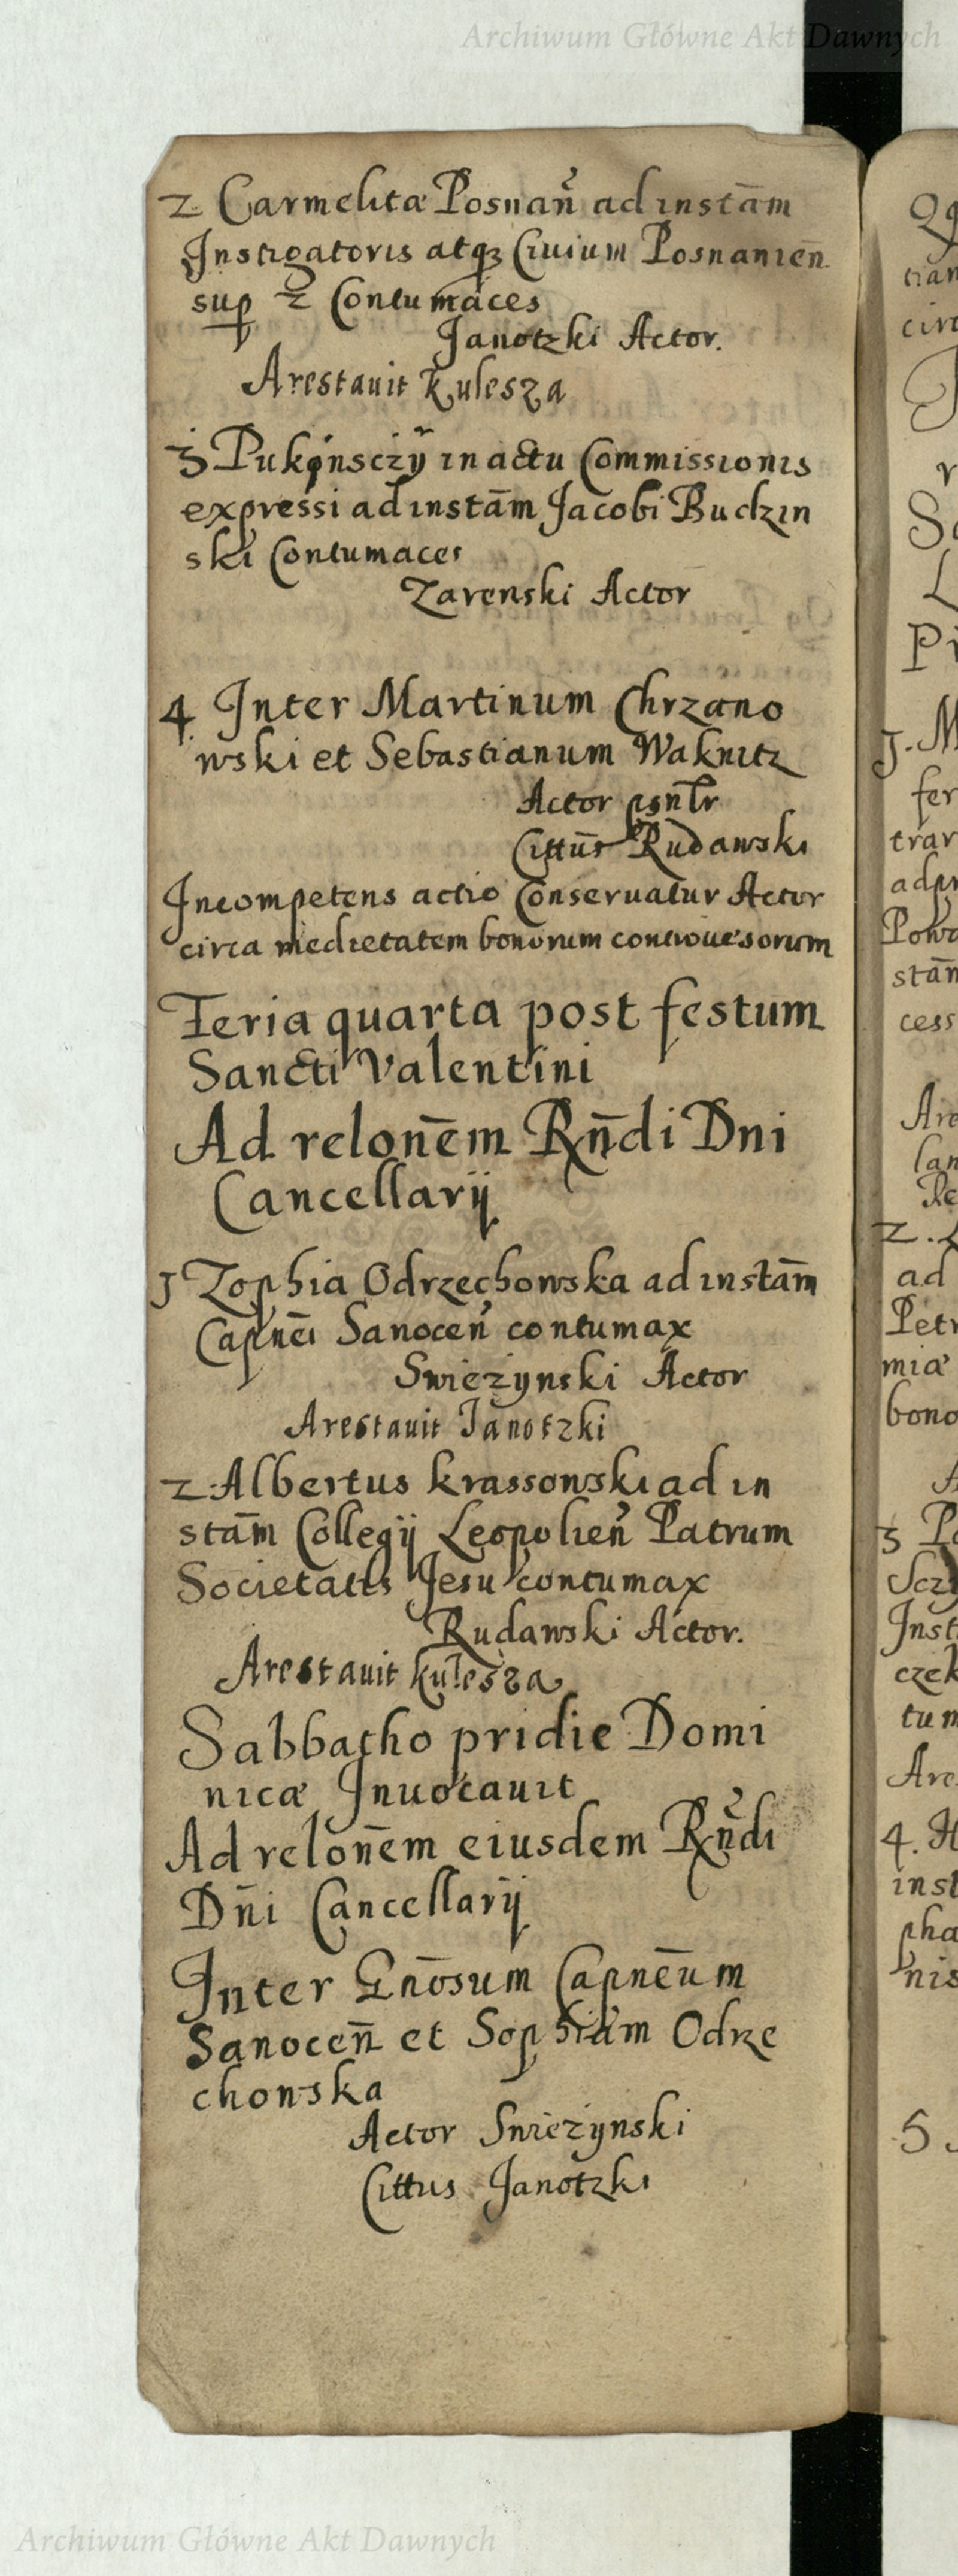 Archiwum Główne Akt Dawnych
2 Carmelitæ Posnan̄ ad instām
Instigatoris atqꝫ Ciuium Posnanien̄
suꝑ 2 Contumaces
Janotzki Actor.
Arestauit Kulesza
3 in actu Commissionis
expressi ad instām Jacobi Budzin
ski Contumaces
Zarenski Actor
4 Inter Martinum Chrzano
wski et Sebastianum Waknitz
Actor
Cittūs Rudawski
Incompetens actio Conseruatur Actor
circa medietatem bonorum
Feria quarta post festum
Sancti Valentini
Ad relonēm Rn̄di Dni
Cancellarij
1 Zophia Odrzechowska ad instām
Capnēi Sanocen̄ contumax
Swiezynski Actor
Arestauit Janotzki
2 Albertus Krassowski ad in
stām Collegij Leopolien̄ Patrum
Societatis Jesu contumax
Rudawski Actor.
Arestauit Kulesza
Sabbatho pridie Domi
nicæ Inuocauit
Ad relonēm eiusdem Rn̄di
Dn̄i Cancellarij
Inter Gnōsum Capnēum
Sanocen̄ et Sophiam Odrze
chowska
Actor Swiezynski
Cittus Janotzki
Archiwum Główne Akt Dawnych